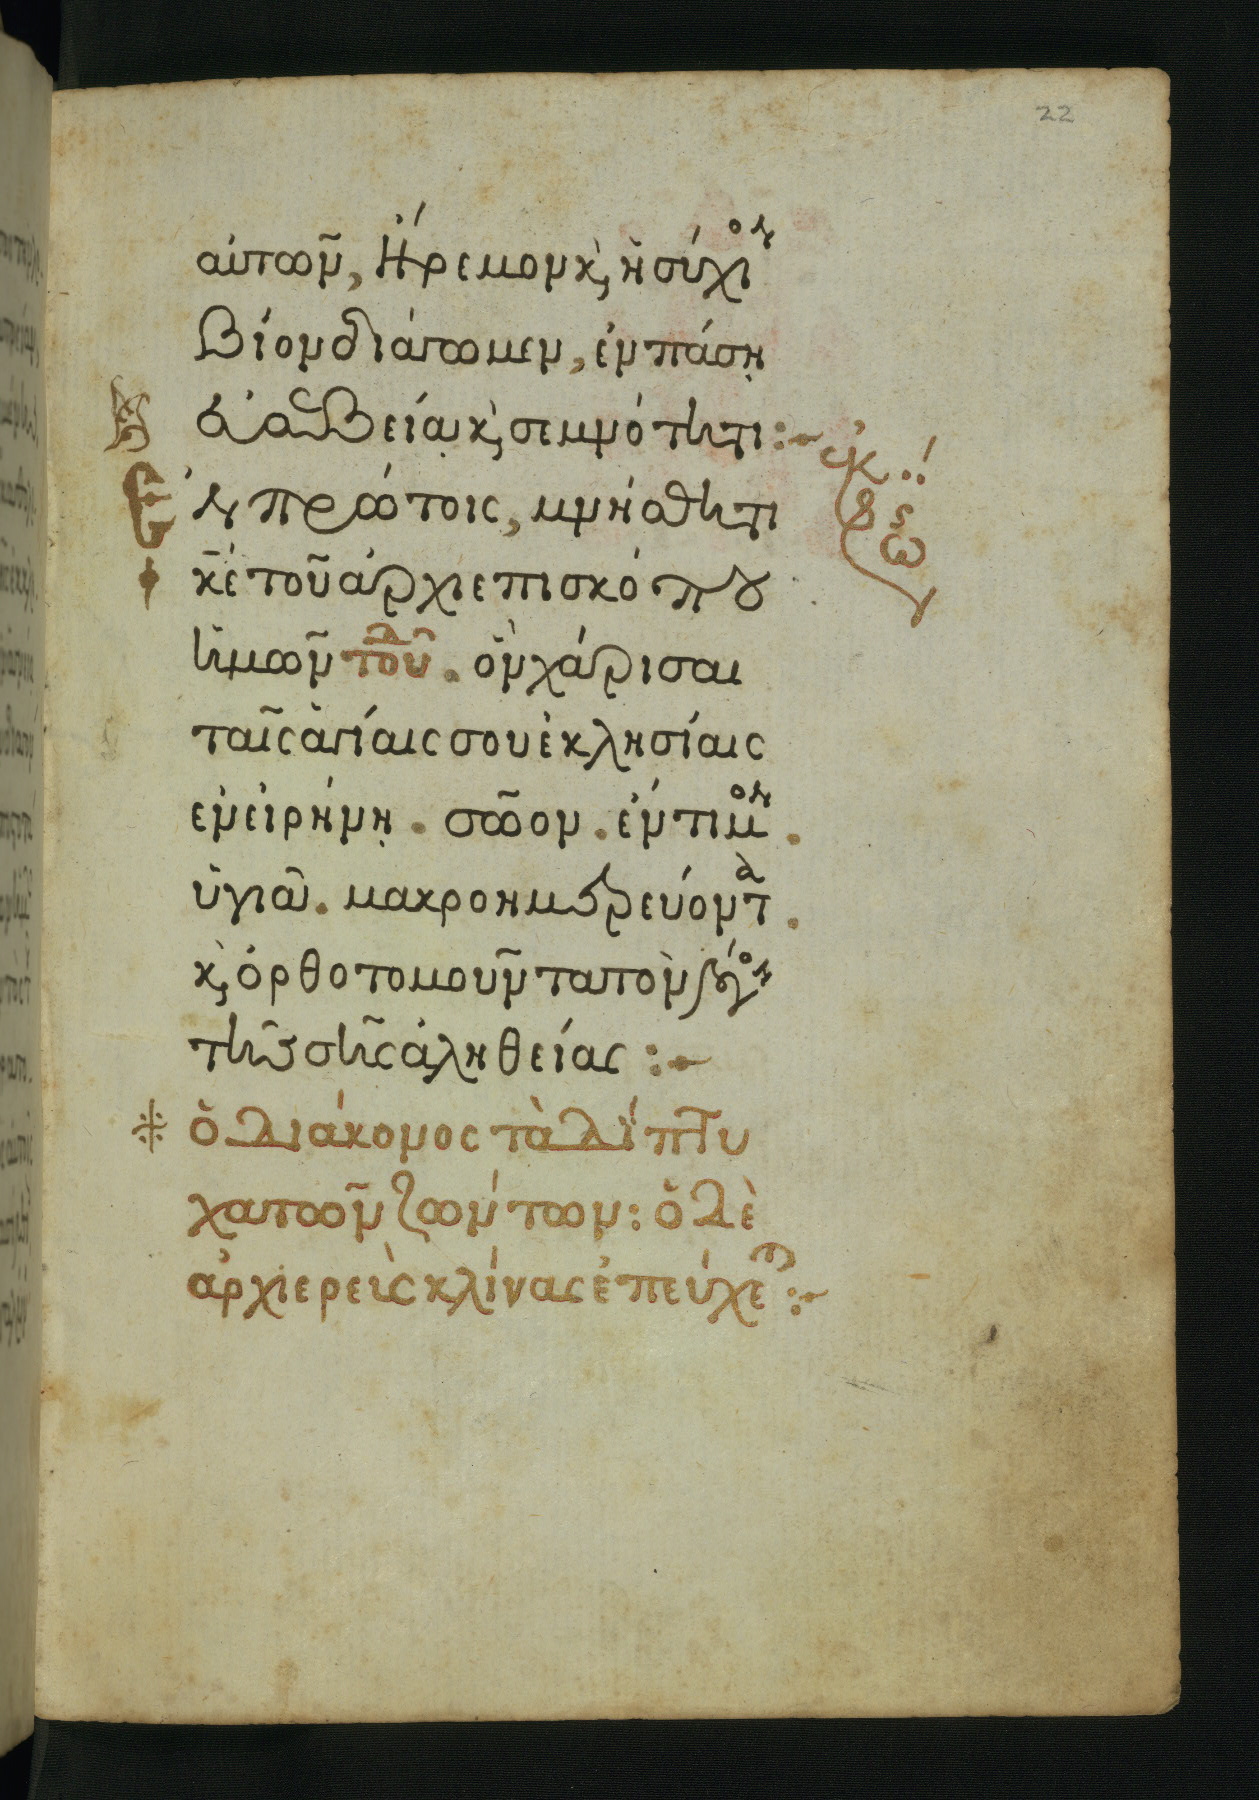 22
αὐτῶν, Ἤρεμον κ̀, ἡσύχιον
Βίον διάγωμεν, ἐν πάσῃ
εὐσεβείᾳ κ̀, σεμνότητι :-
Ἐν πρώτοις, μνήσθητι
κ̅ε̅ τοῦ ἀρχιεπισκόπου
ἡμῶν τοῦ δ. ὃν χάρισαι
ταῖς ἁγίαις σου ἐκλησίαις
ἐν εἰρήνῃ . σῶον . ἔντιμον .
ὑγιᾶ . μακροημερεύοντα .
κ̀, ὀρθοτομοῦντα τὸν λόγον
τῆς σῆς ἀληθείας :-
ὁ διάκονος τὰ δίπτυ
χα τῶν ζώντων : ὁ δὲ
ἀρχιερεὺς κλίνας ἐπεύχεται :-